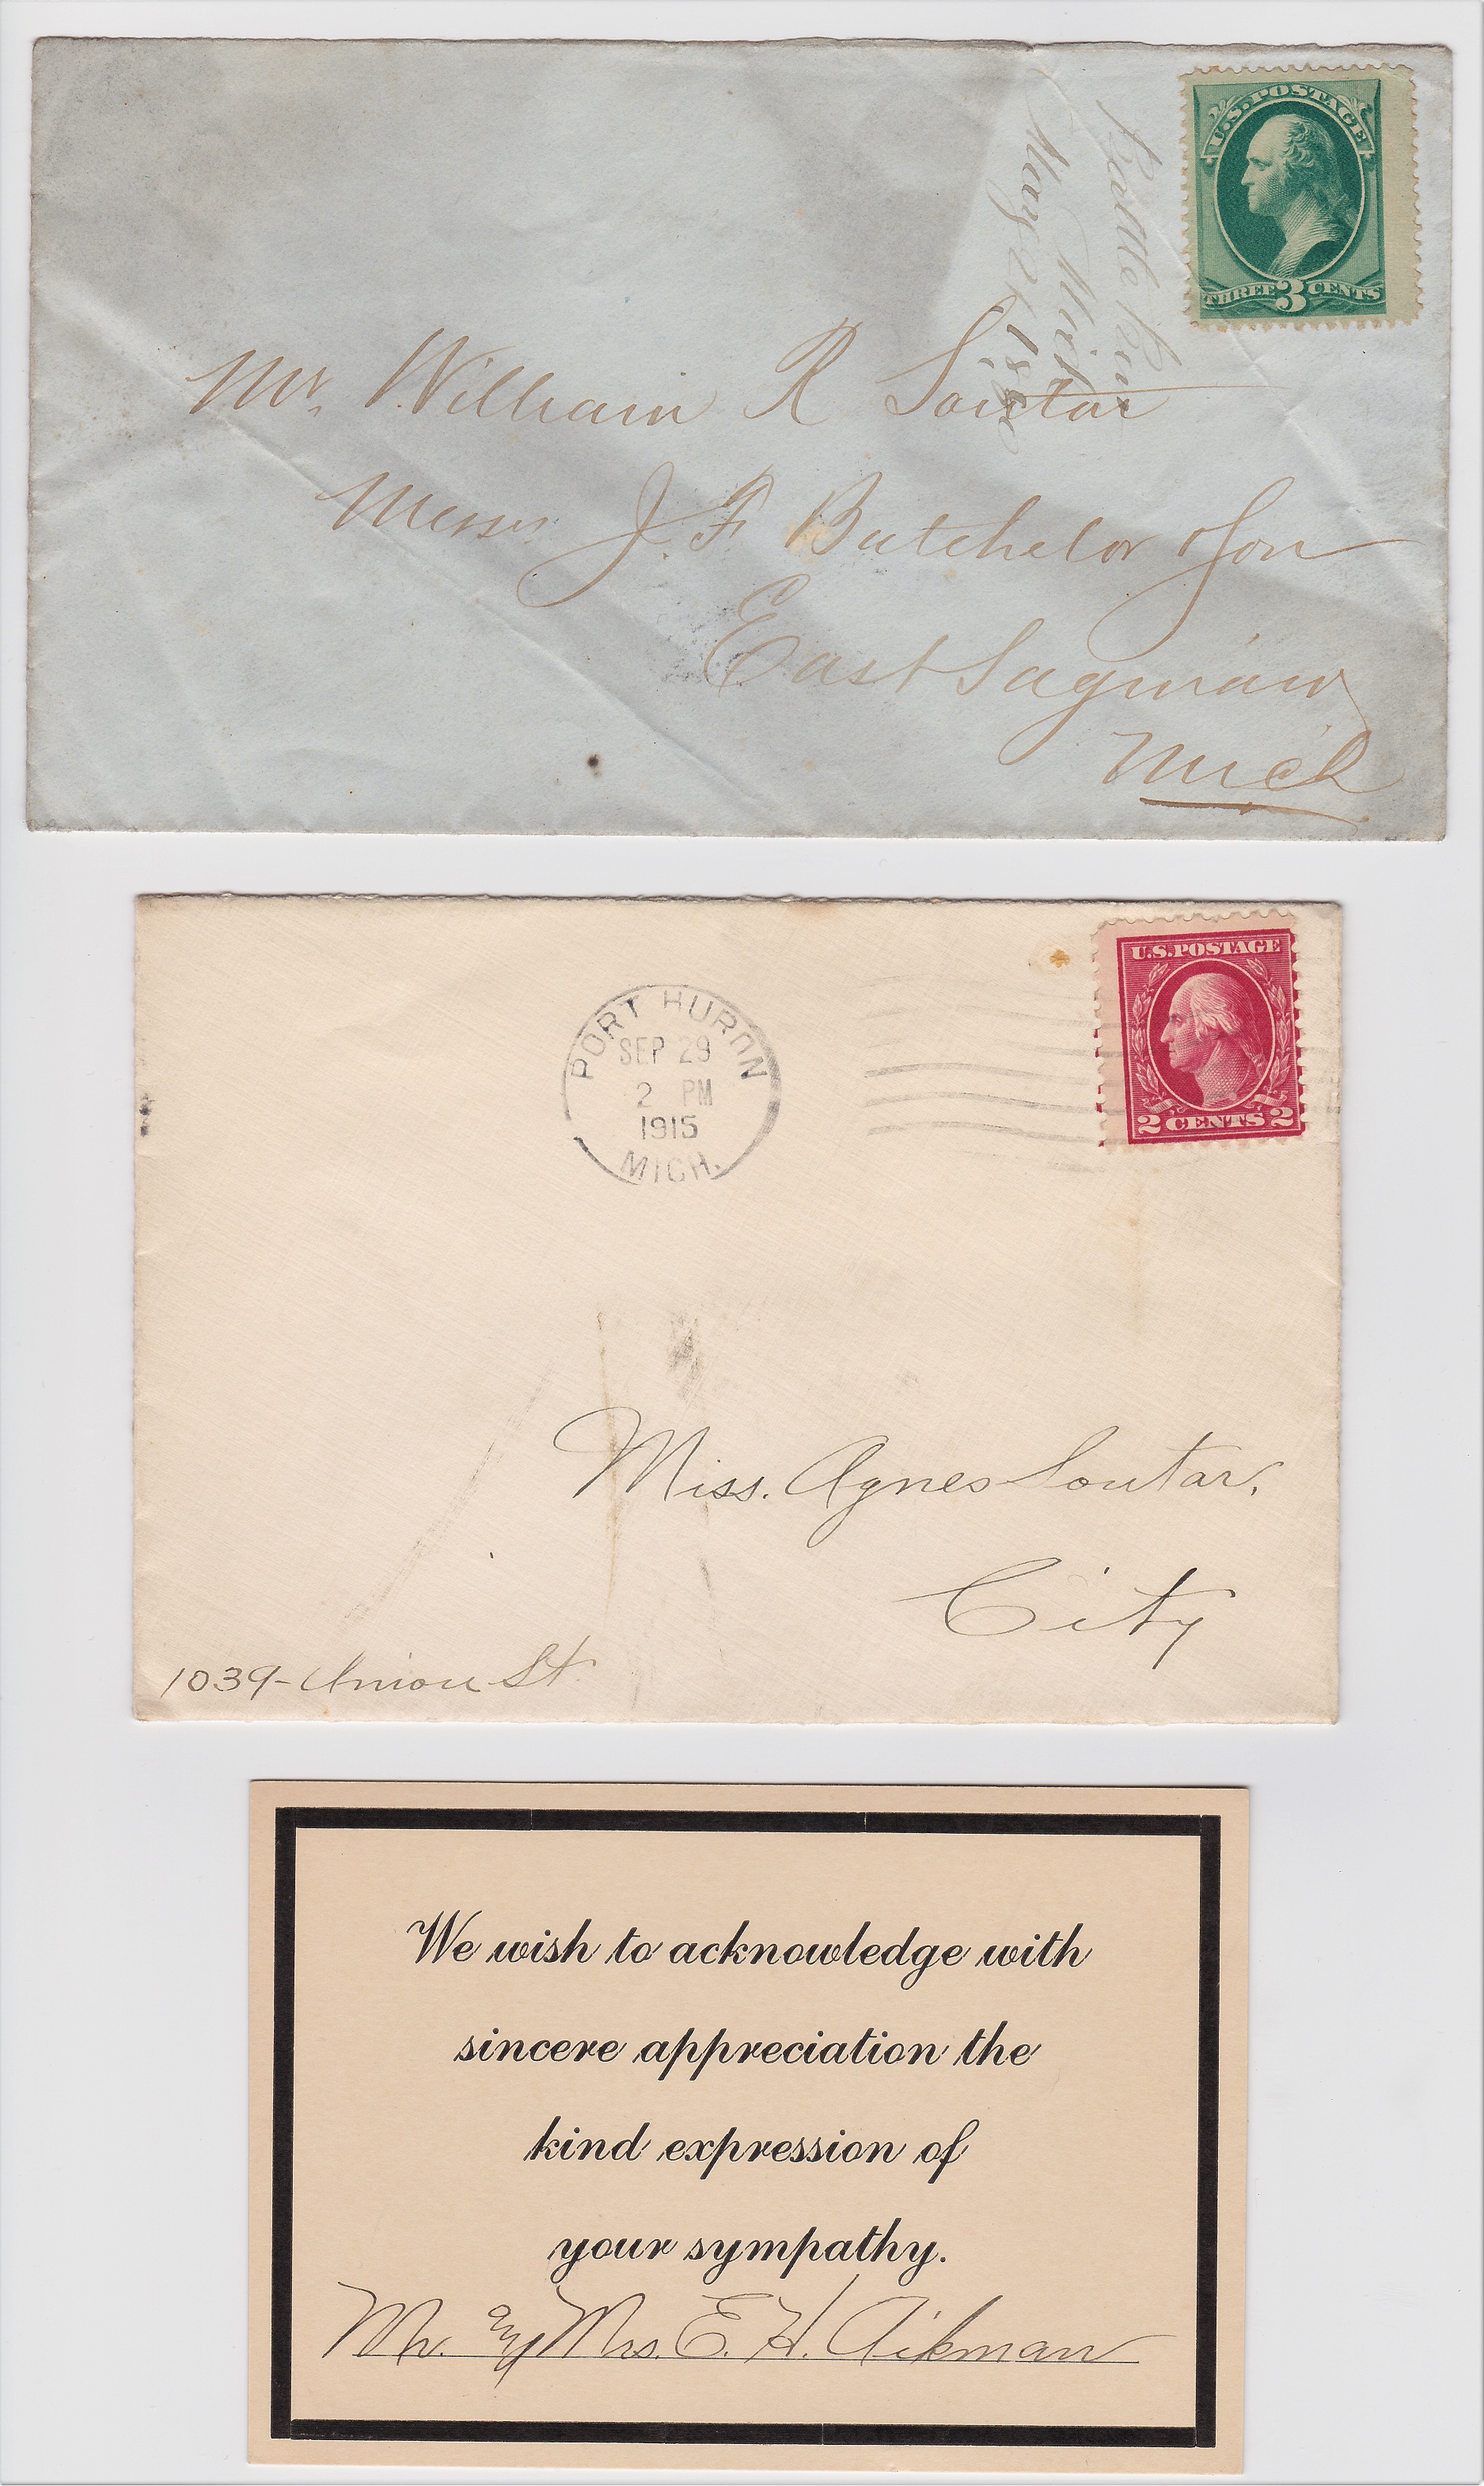 U.S. POSTAGE
THREE 3 CENTS
Mich
May 2
Mr. William R Soutar
Messrs J. F. Butchelor & Son
East Saginaw
Mich
U.S. POSTAGE
2 CENTS 2
PORT HURON
SEP 29
2 PM
1915
MICH.
Miss. Agnes Soutar,
City
1039-Union St.
We wish to acknowledge with
sincere appreciation the
kind expression of
your sympathy.
Mr. and Mrs. E. H. Aikman